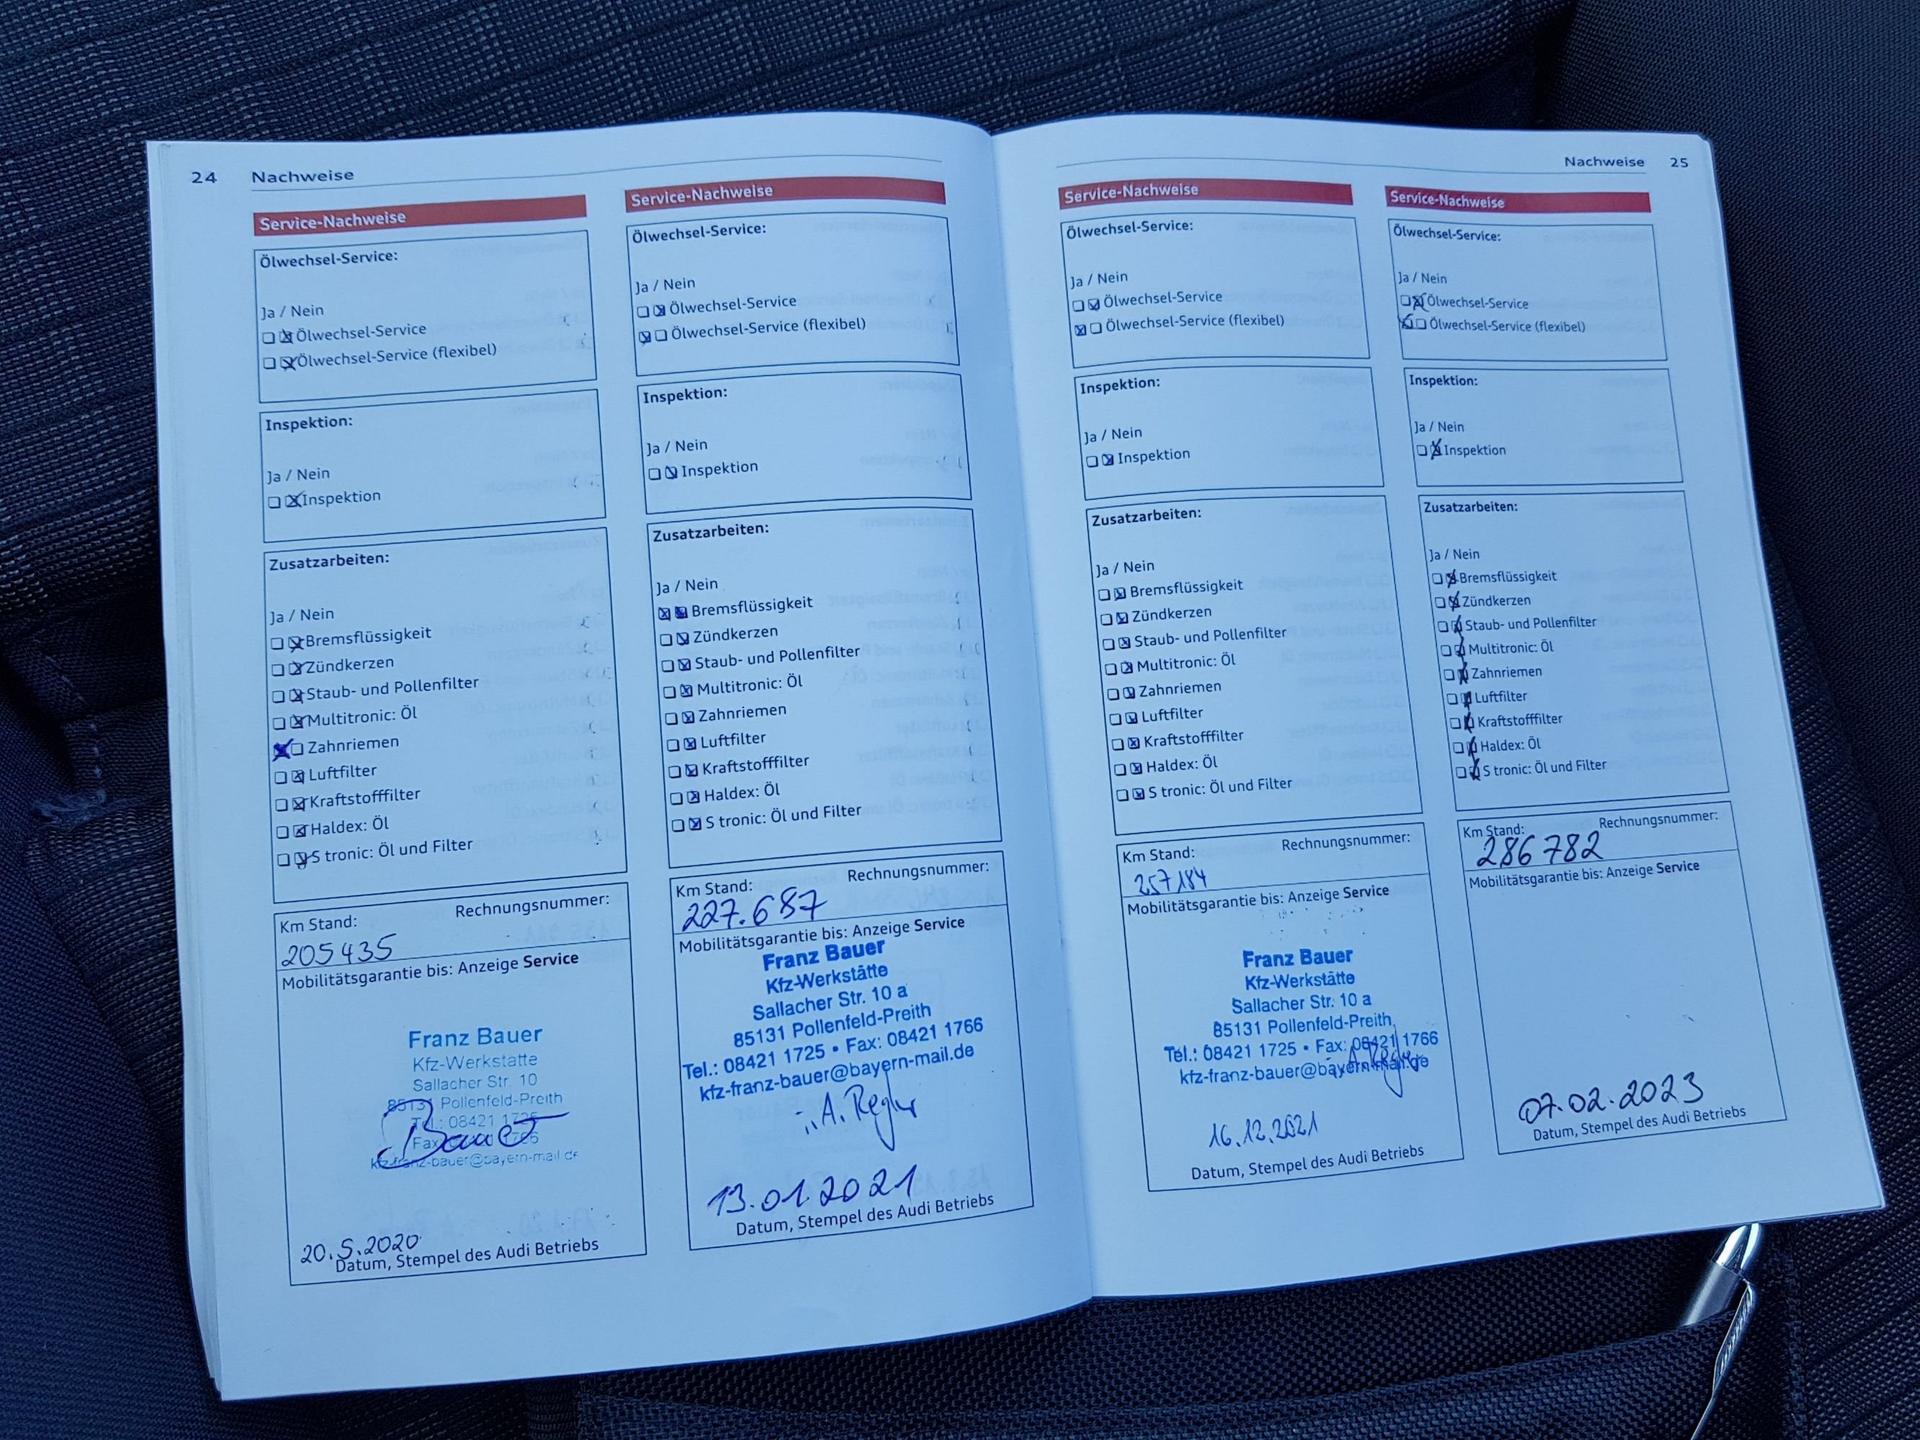 24 Nachweise
Service-Nachweise
Ölwechsel-Service:
Ja / Nein
Ölwechsel-Service
Ölwechsel-Service (flexibel)
Inspektion:
Ja / Nein
Inspektion
Zusatzarbeiten:
Ja / Nein
Bremsflüssigkeit
Zündkerzen
Staub- und Pollenfilter
Multitronic: Öl
Zahnriemen
Luftfilter
Kraftstofffilter
Haldex: Öl
S tronic: Öl und Filter
Km Stand: Rechnungsnummer:
205435
Mobilitätsgarantie bis: Anzeige Service
Franz Bauer
Kfz-Werkstätte
Sallacher Str. 10
85131 Pollenfeld-Preith
Tel.: 08421 1725
Fax: 08421 1766
kfz-franz-bauer@bayern-mail.de
Bauer
20.5.2020
Datum, Stempel des Audi Betriebs
Service-Nachweise
Ölwechsel-Service:
Ja / Nein
Ölwechsel-Service
Ölwechsel-Service (flexibel)
Inspektion:
Ja / Nein
Inspektion
Zusatzarbeiten:
Ja / Nein
Bremsflüssigkeit
Zündkerzen
Staub- und Pollenfilter
Multitronic: Öl
Zahnriemen
Luftfilter
Kraftstofffilter
Haldex: Öl
S tronic: Öl und Filter
Km Stand: Rechnungsnummer:
227.687
Mobilitätsgarantie bis: Anzeige Service
Franz Bauer
Kfz-Werkstätte
Sallacher Str. 10 a
85131 Pollenfeld-Preith
Tel.: 08421 1725 • Fax: 08421 1766
kfz-franz-bauer@bayern-mail.de
A. Regler
13.01.2021
Datum, Stempel des Audi Betriebs
Nachweise 25
Service-Nachweise
Ölwechsel-Service:
Ja / Nein
Ölwechsel-Service
Ölwechsel-Service (flexibel)
Inspektion:
Ja / Nein
Inspektion
Zusatzarbeiten:
Ja / Nein
Bremsflüssigkeit
Zündkerzen
Staub- und Pollenfilter
Multitronic: Öl
Zahnriemen
Luftfilter
Kraftstofffilter
Haldex: Öl
S tronic: Öl und Filter
Km Stand: Rechnungsnummer:
257184
Mobilitätsgarantie bis: Anzeige Service
Franz Bauer
Kfz-Werkstätte
Sallacher Str. 10 a
85131 Pollenfeld-Preith
Tel.: 08421 1725 • Fax: 08421 1766
kfz-franz-bauer@bayern-mail.de
A. Regler
16.12.2021
Datum, Stempel des Audi Betriebs
Service-Nachweise
Ölwechsel-Service:
Ja / Nein
Ölwechsel-Service
Ölwechsel-Service (flexibel)
Inspektion:
Ja / Nein
Inspektion
Zusatzarbeiten:
Ja / Nein
Bremsflüssigkeit
Zündkerzen
Staub- und Pollenfilter
Multitronic: Öl
Zahnriemen
Luftfilter
Kraftstofffilter
Haldex: Öl
S tronic: Öl und Filter
Km Stand: Rechnungsnummer:
286782
Mobilitätsgarantie bis: Anzeige Service
07.02.2023
Datum, Stempel des Audi Betriebs